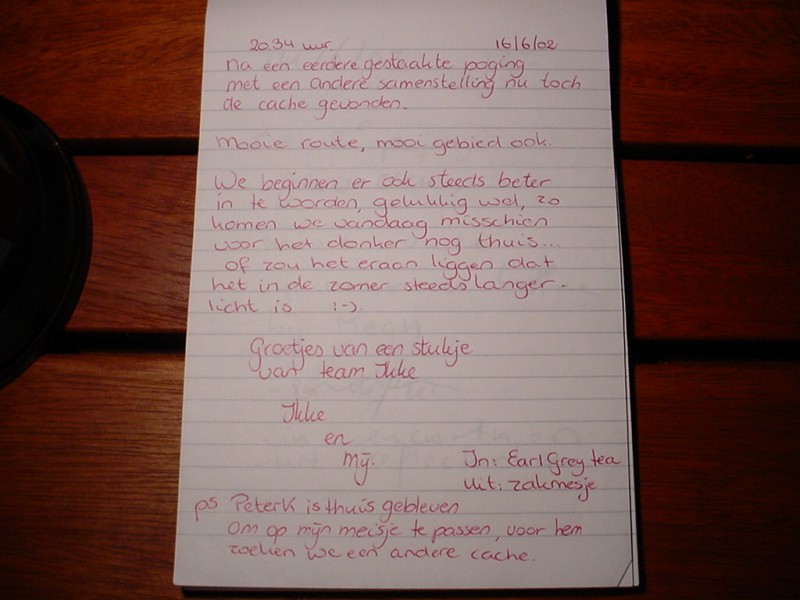 20.34 uur. 16/6/02
Na een eerdere gestaakte poging
met een andere samenstelling nu toch
de cache gevonden.
Mooie route, mooi gebied ook.
We beginnen er ook steeds beter
in te worden, gelukkig wel, zo
komen we vandaag misschien
voor het donker nog thuis...
of zou het eraan liggen dat
het in de zomer steeds langer
licht is :-)
Groetjes van een stukje
van team Ikke
Ikke
en
mij.
In: Earl Grey tea
Uit: zakmesje
ps PeterK is thuis gebleven
om op mijn meisje te passen, voor hem
zoeken we een andere cache.